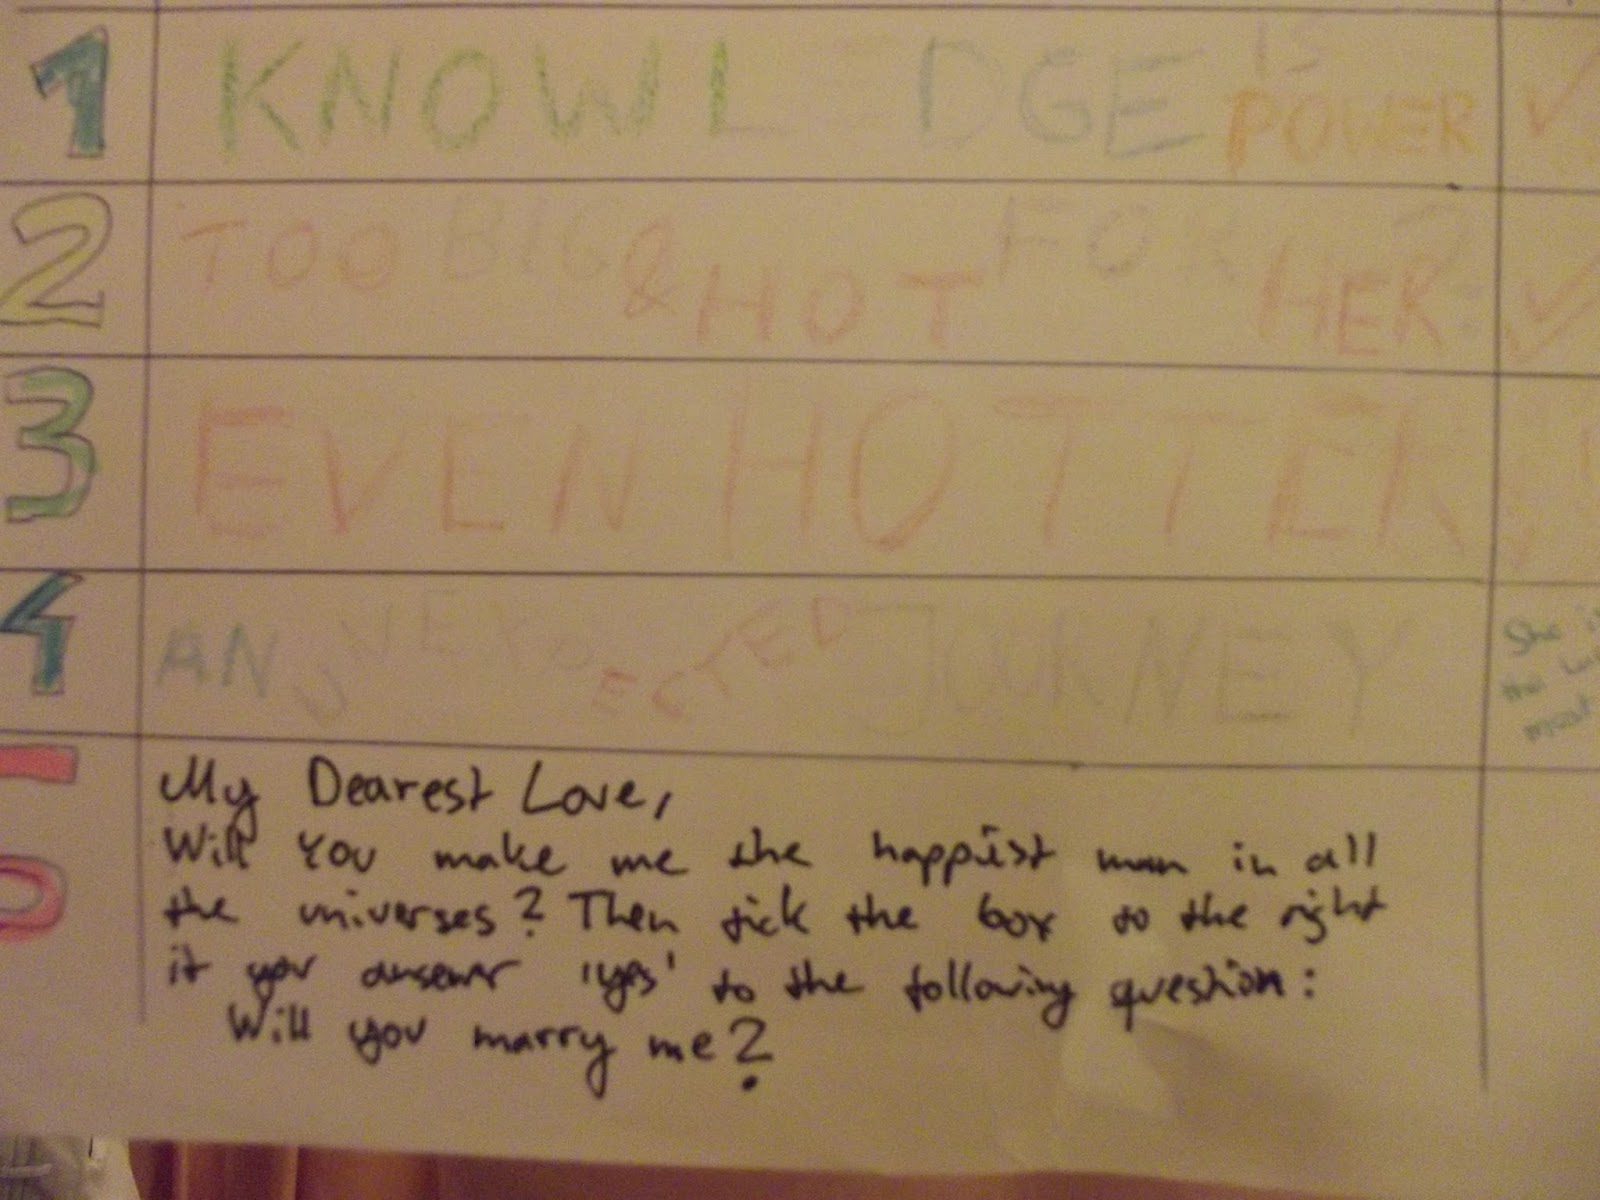 1 KNOWL DGE IS POWER ✓
2 TOO BIG & HOT FOR HER? ✓
3 EVEN HOTTER
4 AN UNEXPECTED JOURNEY
She is
the
most
My Dearest Love,
Will you make me the happiest man in all
the universes? Then tick the box to the right
if you answer 'yes' to the following question:
Will you marry me?